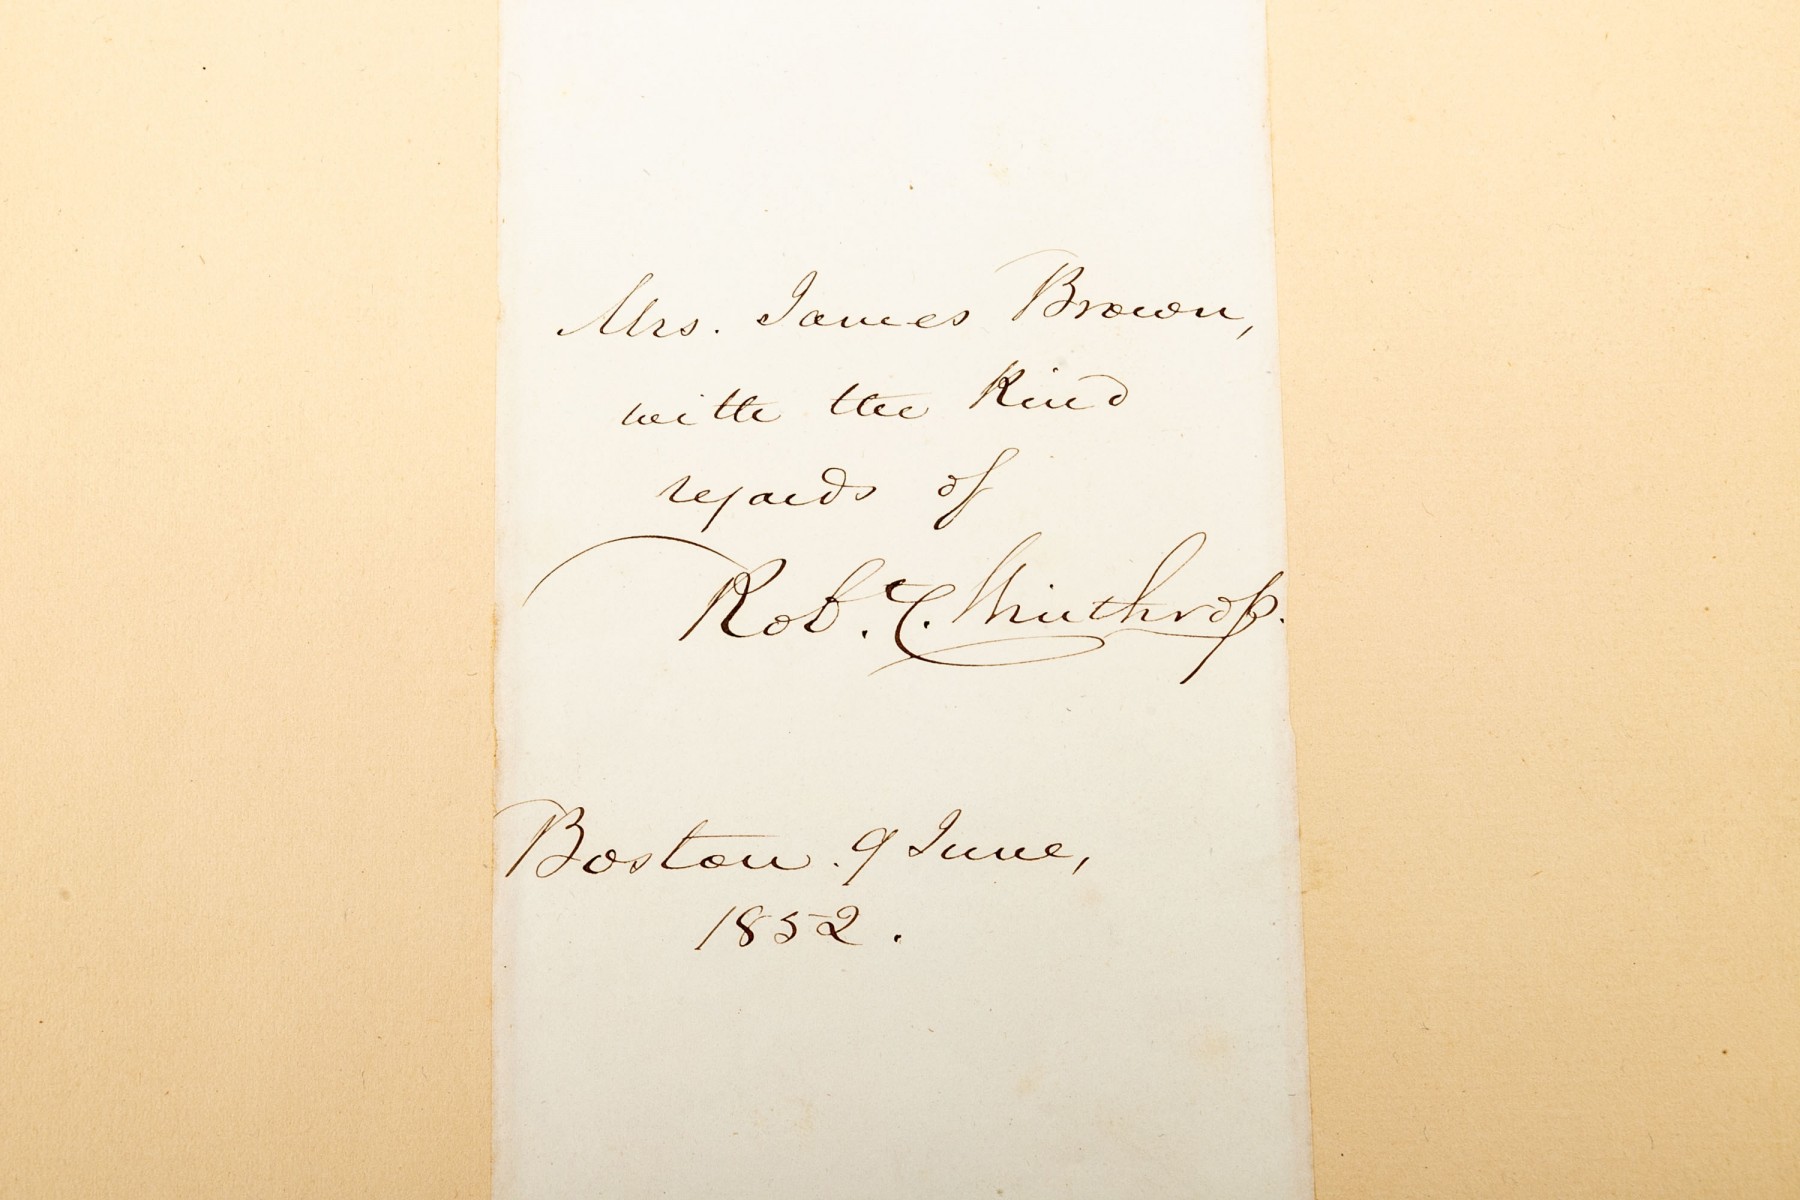 Mrs. James Brown,
with the Kind
regards of
Rob. C. Winthrop.
Boston. 9 June,
1852.